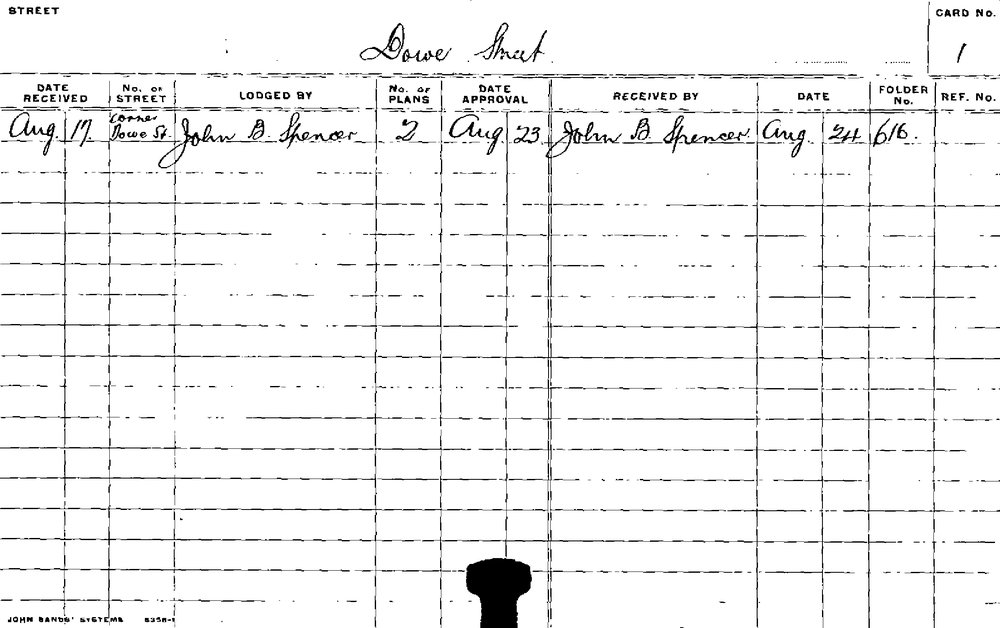 STREET
CARD No.
Dowe Street
1
DATE RECEIVED
No. OF STREET
LODGED BY
No. OF PLANS
DATE APPROVAL
RECEIVED BY
DATE
FOLDER No.
REF. No.
Aug. 17. corner Dowe St. John B. Spencer 2 Aug 23 John B. Spencer Aug. 24 616.
JOHN SANDS' SYSTEMS